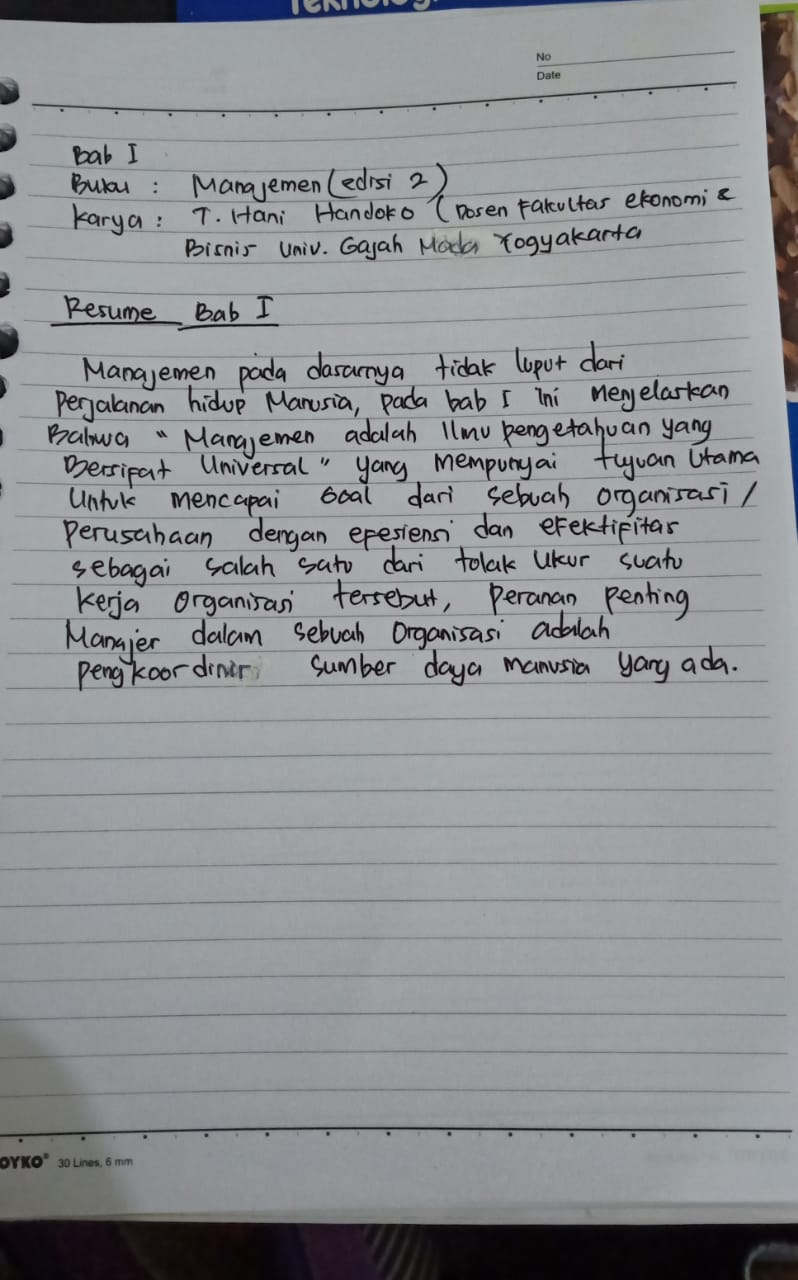 Teknologi
No
Date
Bab I
Buku : Manajemen (edisi 2)
Karya : T. Hani Handoko (Dosen Fakultas ekonomi &
Bisnis Univ. Gajah Mada Yogyakarta
Resume Bab I
Manajemen pada dasarnya tidak luput dari
Perjalanan hidup Manusia, pada bab I ini menjelaskan
Bahwa " Manajemen adalah Ilmu pengetahuan yang
Bersifat Universal" yang mempunyai tujuan Utama
Untuk mencapai Goal dari sebuah organisasi /
Perusahaan dengan efesiensi dan efektifitas
sebagai salah satu dari tolak Ukur suatu
kerja Organisasi tersebut, Peranan Penting
Manajer dalam sebuah Organisasi adalah
pengkoordinir sumber daya manusia yang ada.
OYKO® 30 Lines, 6 mm